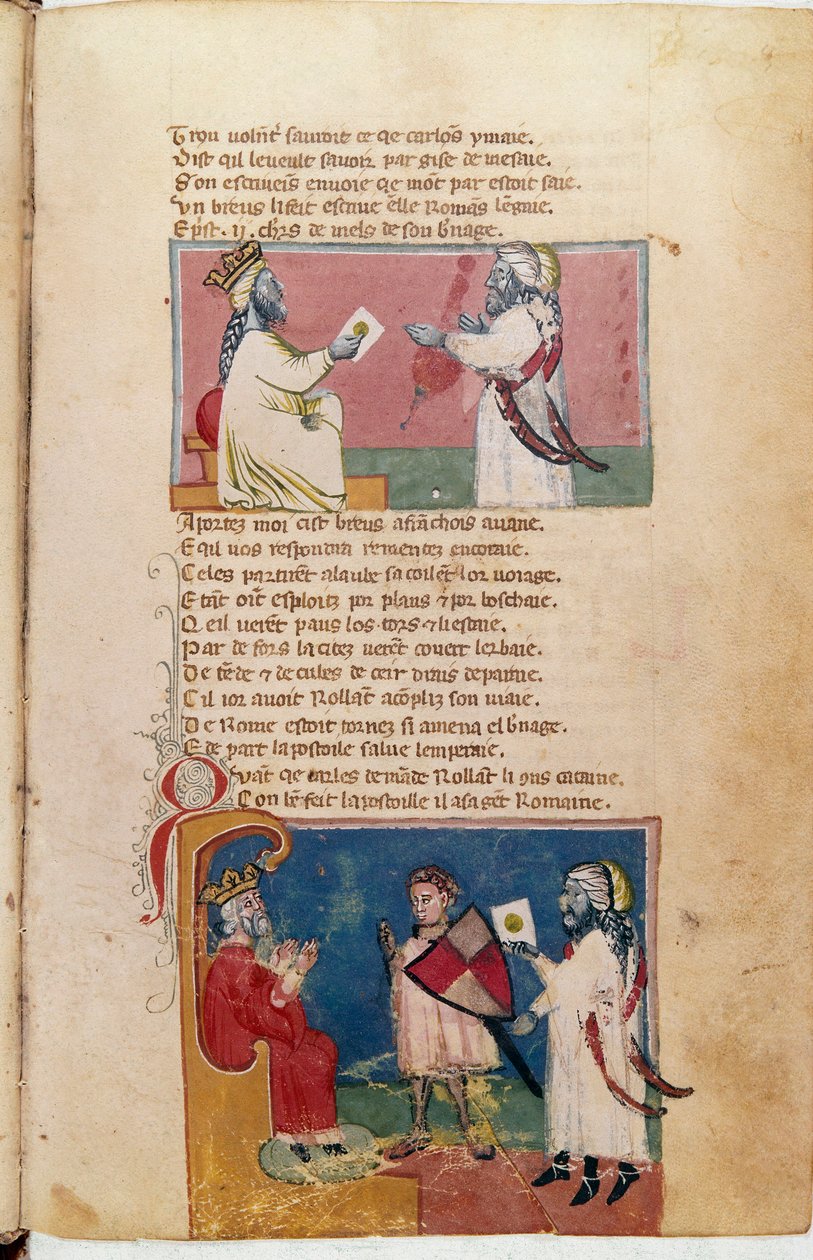 Trou volũt savoir ce qe carlõs ymaie.
Dist qil leveult savoir par gise de mesaie.
Son escriveis envoie qe mõt par estoit saie.
Un breus li feit escrive ẽlle Romãs lẽgaie.
E pst. ij. chrs de miels de son bñage.
Aportez moi cist breus a frãchois avane.
E qil vos respondra rementez encoraie.
Celes partirẽt alaube sa coilẽt lor voiage.
E tãt oĩt esploitz por plans ⁊ por boschaie.
Qeil virẽt paus los tors ⁊ liestaie.
Par de fors la citez virẽt covert lerbaie.
De tẽde ⁊ de cules de ceir dirais de paraie.
Cil ior avoit Rollãt acõpliz son viaie.
De Rome estoit tornez si amena el bñage.
E de part lapostoile salue lemperaie.
Qvãt qe carles demãde Rollãt li qns cataine.
Con bẽ feit lapostoille il a sa gẽt Romaine.